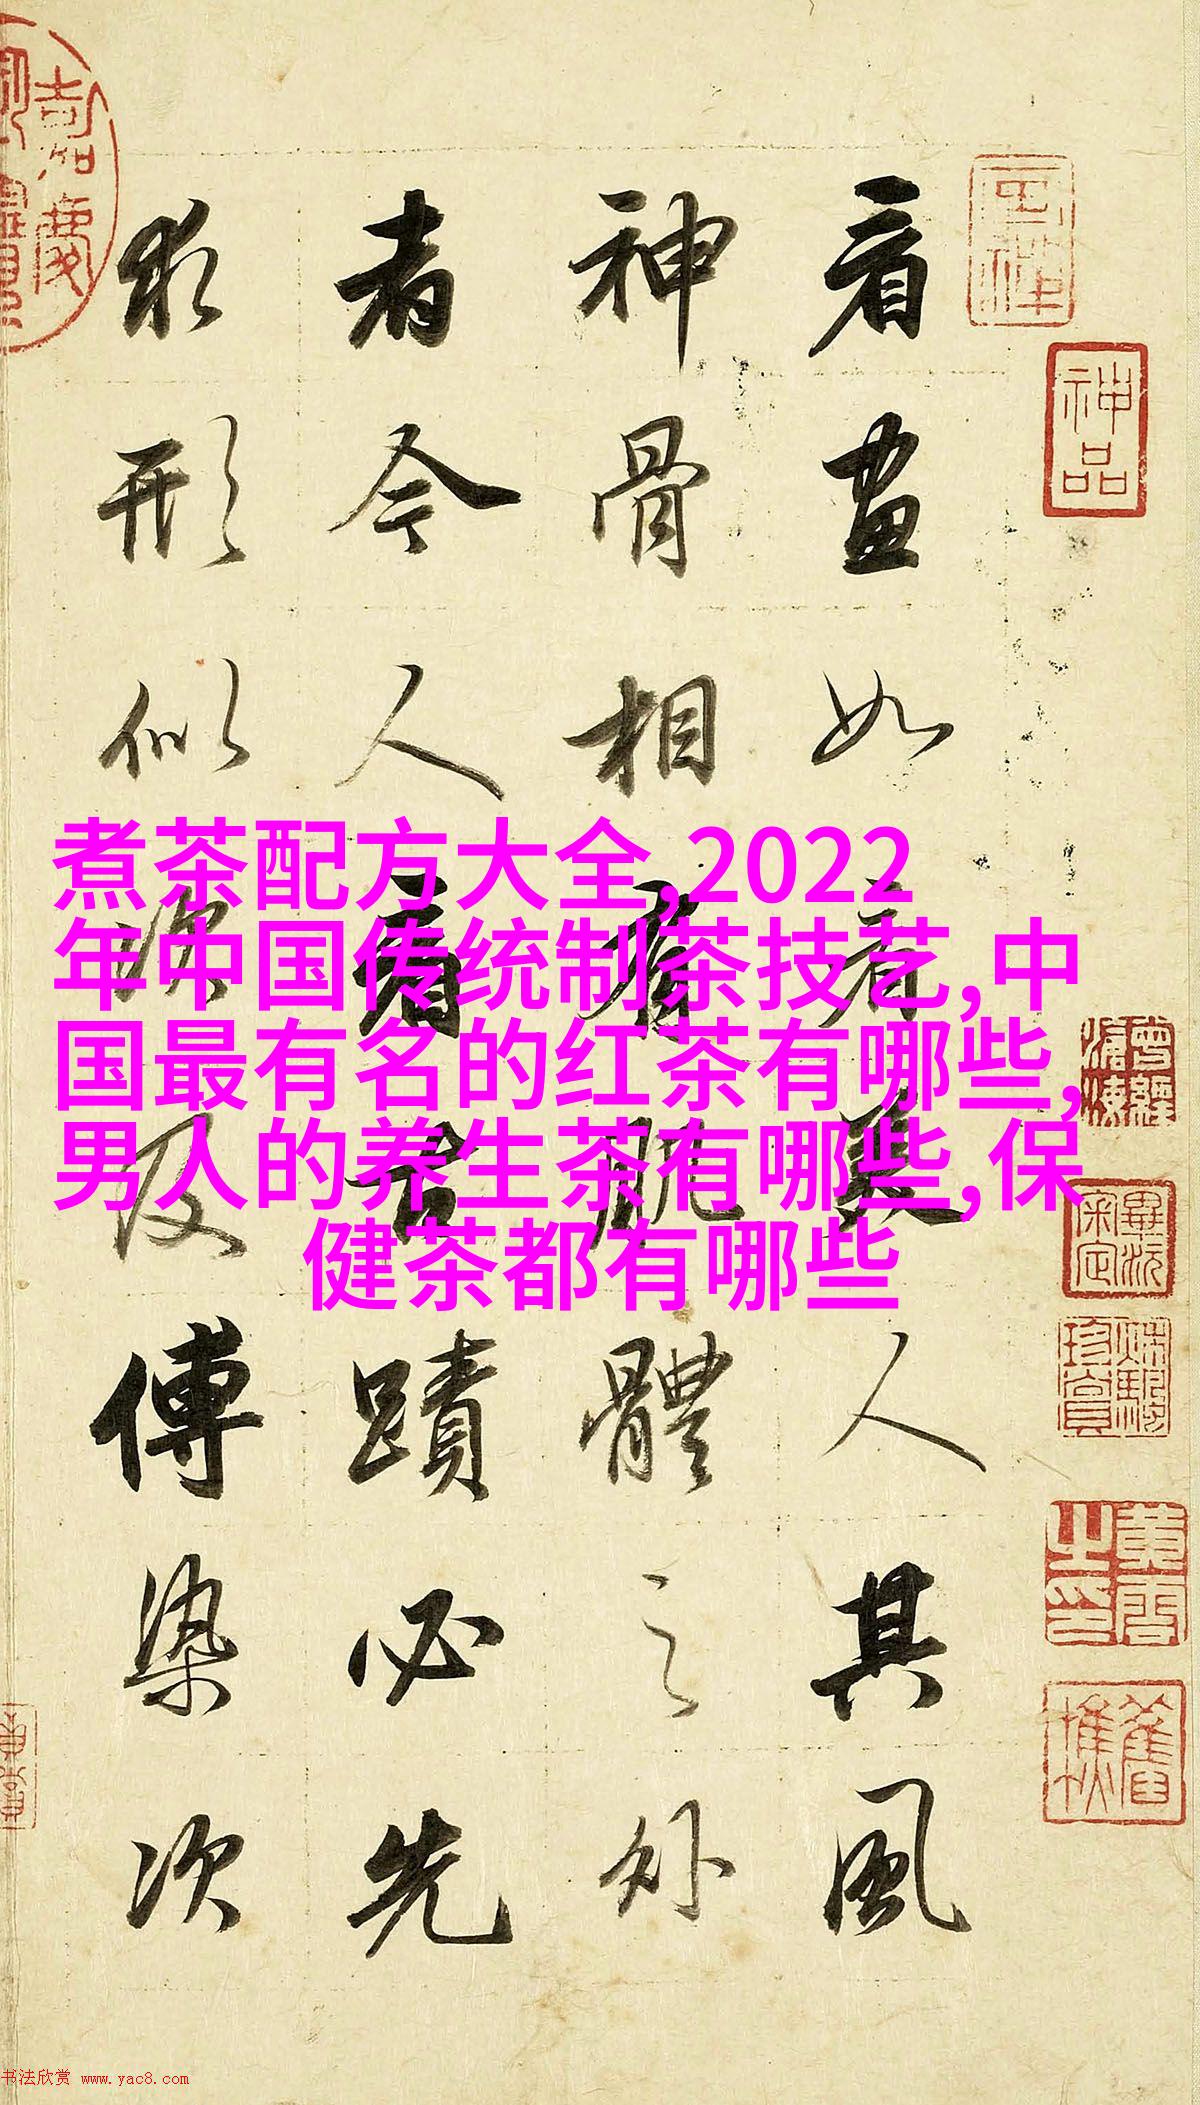 煮茶配方大全,2022
年中国传统制茶技艺,中
国最有名的红茶有哪些,
男人的养生茶有哪些,保
健茶都有哪些
看畫如看美人其風
神骨相有肌體之外
者今人看古蹟必先
求形似次及傅染次
神品
嘉慶
書法欣赏 www.yac8.com